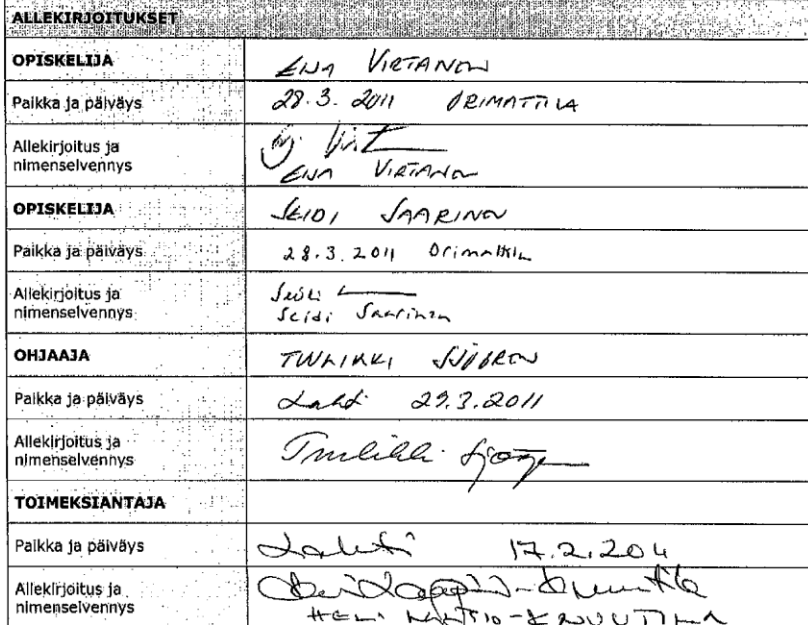 ALLEKIRJOITUKSET
OPISKELIJA ENJA VIRTANEN
Paikka ja päiväys 28.3. 2011 ORIMATTILA
Allekirjoitus ja
nimenselvennys
VIRTANEN
OPISKELIJA SEIDI SAARINEN
Paikka ja päiväys 28.3.2011 Orimattila
Allekirjoitus ja Seidi
nimenselvennys Seidi Saarinen
OHJAAJA TUULIKKI SJÖGREN
Paikka ja päiväys Lahti 29.3.2011
Allekirjoitus ja
nimenselvennys Tuulikki Sjögren
TOIMEKSIANTAJA
Paikka ja päiväys Lahti 17.2.2011
Allekirjoitus ja
nimenselvennys HELI